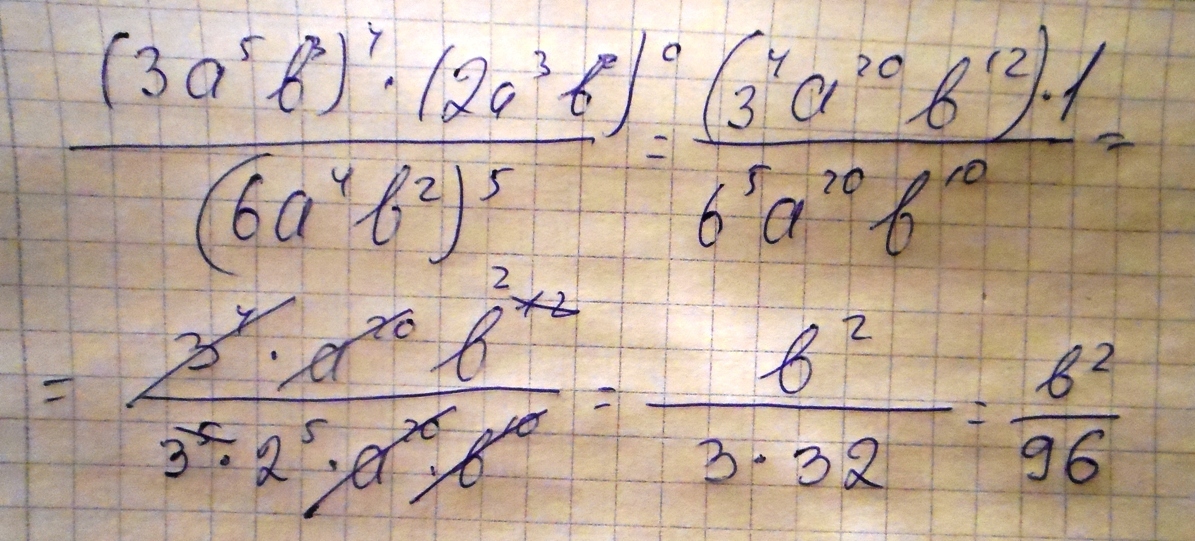 (3a⁵b³)⁴ · (2a³b⁷)⁰ / (6a⁴b²)⁵ = (3⁴a²⁰b¹²)·1 / 6⁵a²⁰b¹⁰ =
= 3⁴ · a²⁰ b² ¹² / 3⁵ · 2⁵ · a²⁰ · b¹⁰ = b² / 3 · 32 = b² / 96